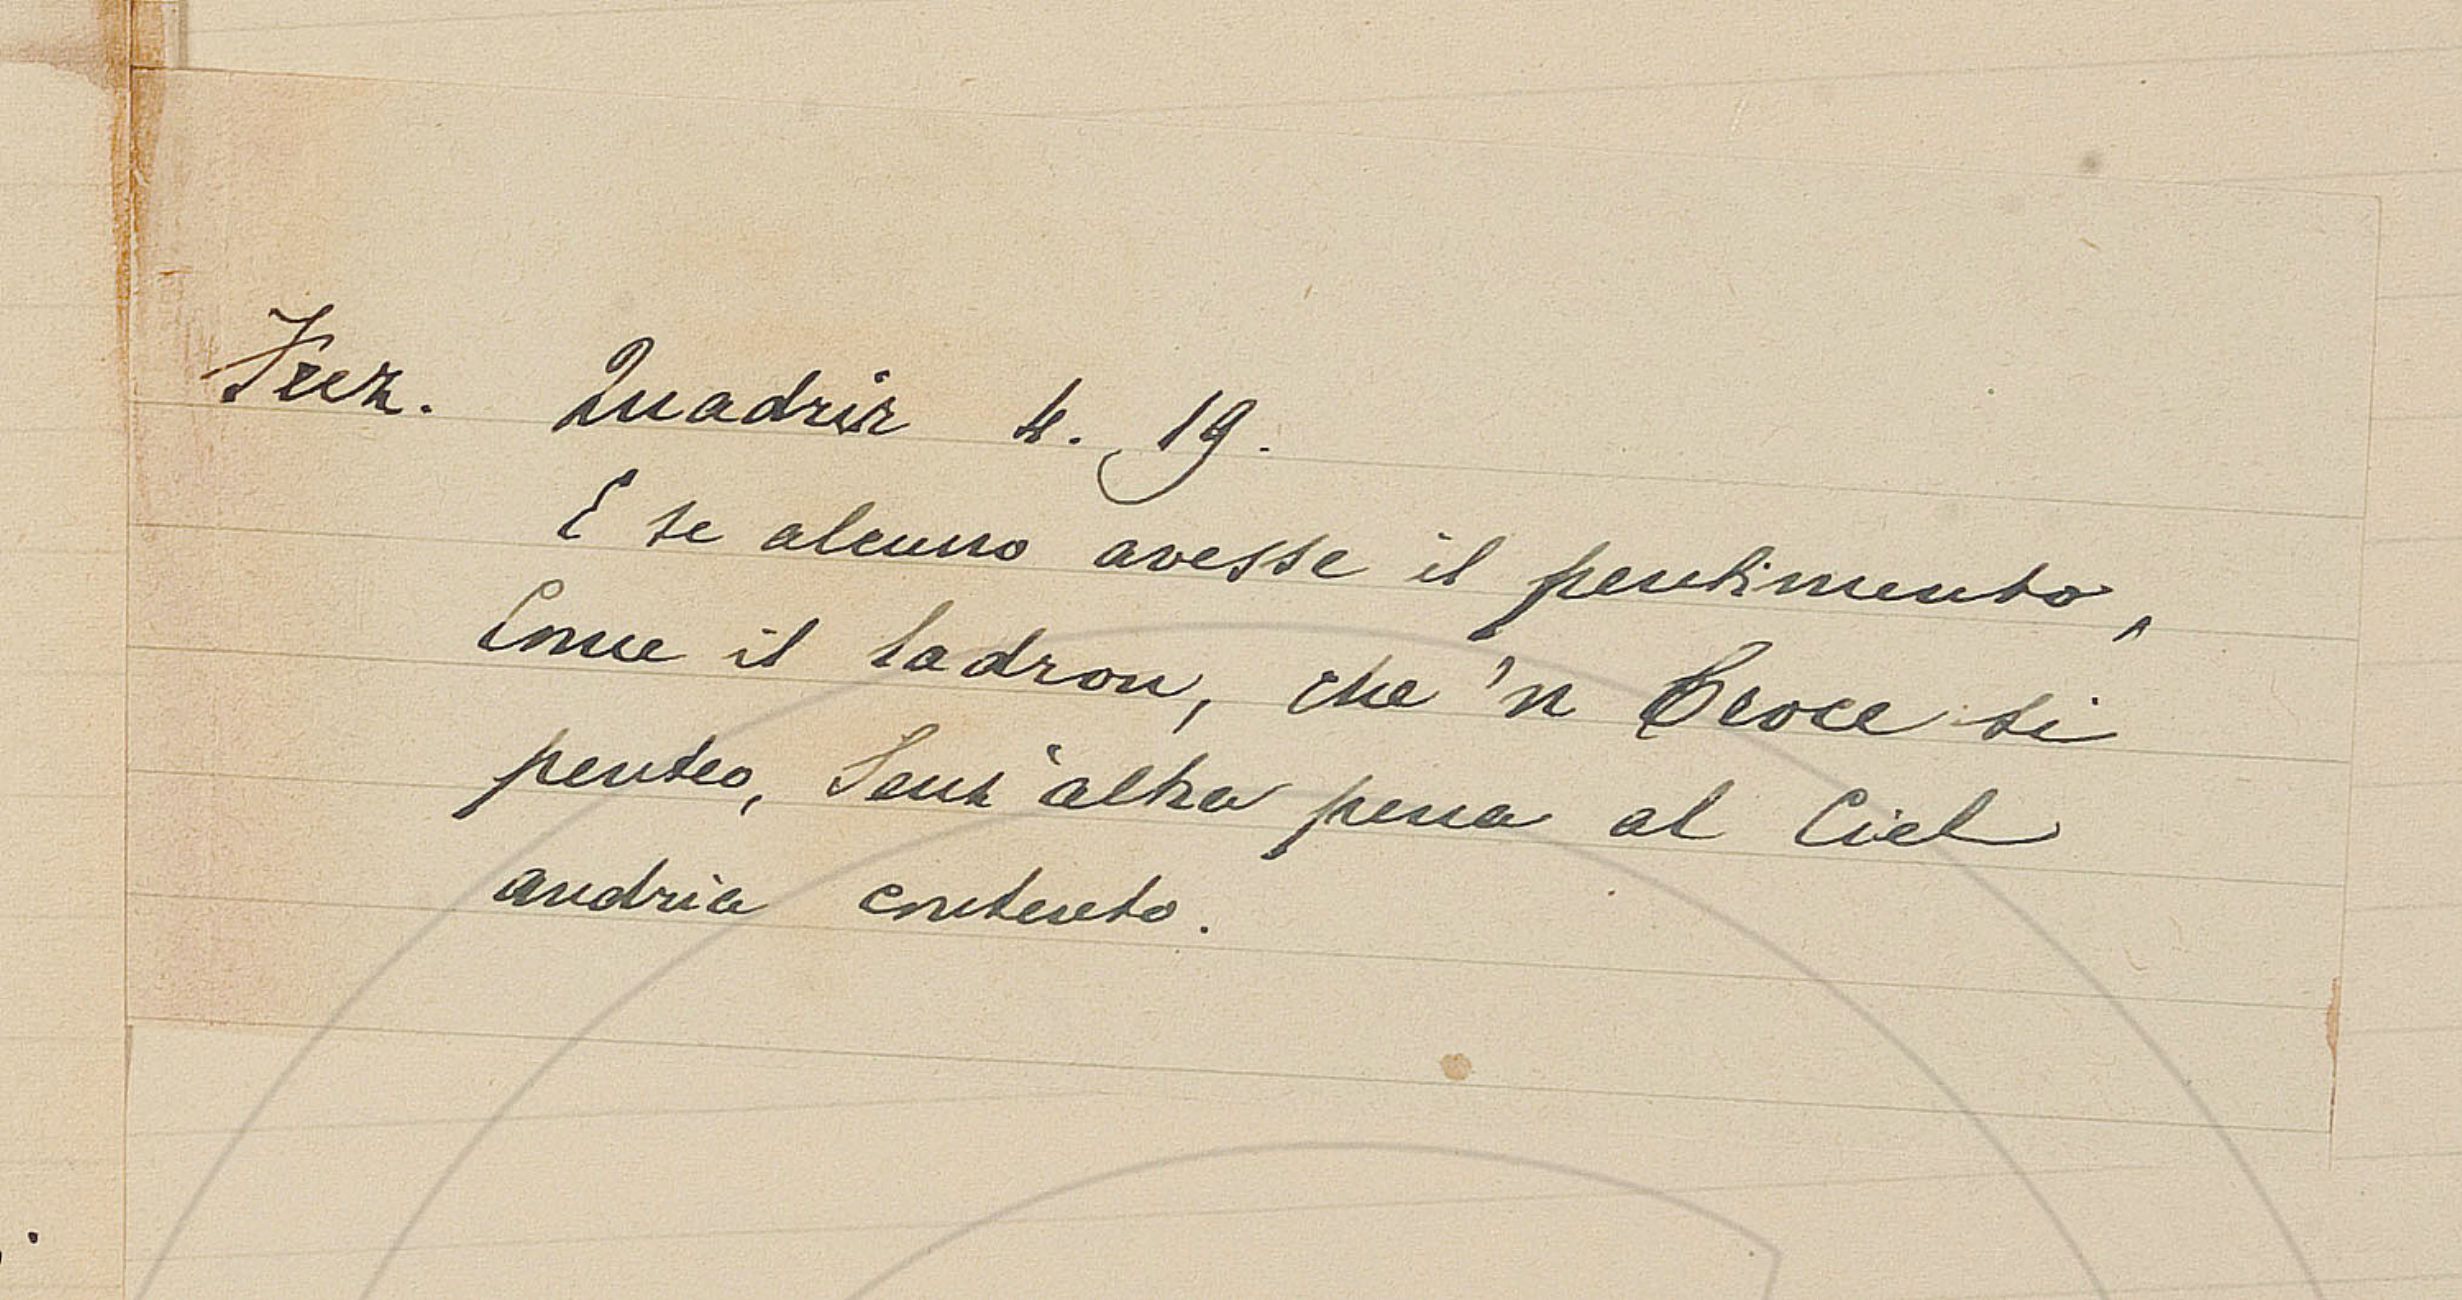 Frez. Quadrir 4. 19.
E se alcuno avesse il pentimento,
Come il ladron, che 'n Croce si
penteo, Senz'altra pena al Ciel
andria contento.